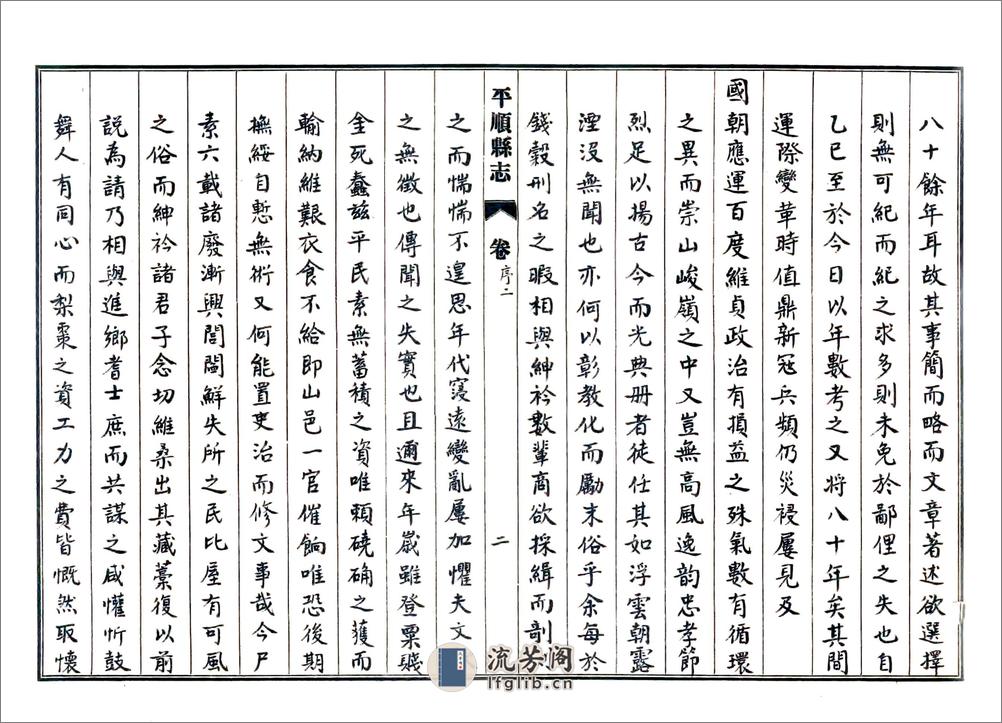 八十餘年耳故其事簡而略而文章著述欲選擇
則無可紀而紀之求多則未免於鄙俚之失也自
乙巳至於今日以年數考之又將八十年矣其間
運際變革時值鼎新冠兵頻仍災祲屢見及
國朝應運百度維貞政治有損益之殊氣數有循環
之異而崇山峻嶺之中又豈無高風逸韵忠孝節
烈足以揚古今而光典册者徒任其如浮雲朝露
湮沒無聞也亦何以彰教化而勵末俗乎余每於
錢穀刑名之暇相與紳衿數輩商欲採緝而剞
平順縣志 卷 序二 二
之而惴惴不遑思年代寖遠變亂屢加懼夫文
之無徵也傳聞之失實也且邇來年嵗雖登粟賤
金死蠢兹平民素無蓄積之資唯賴磽确之獲而
輸納維艱衣食不給即山邑一官催餉唯恐後期
撫綏自慙無術又何能置吏治而修文事哉今尸
素六載諸廢漸興閭閻鮮失所之民比屋有可風
之俗而紳衿諸君子念切維桑出其藏藁復以前
説為請乃相與進鄉耆士庶而共謀之咸懽忻鼓
舞人有同心而梨棗之資工力之費皆慨然取懷
流芳阁
lfglib.cn